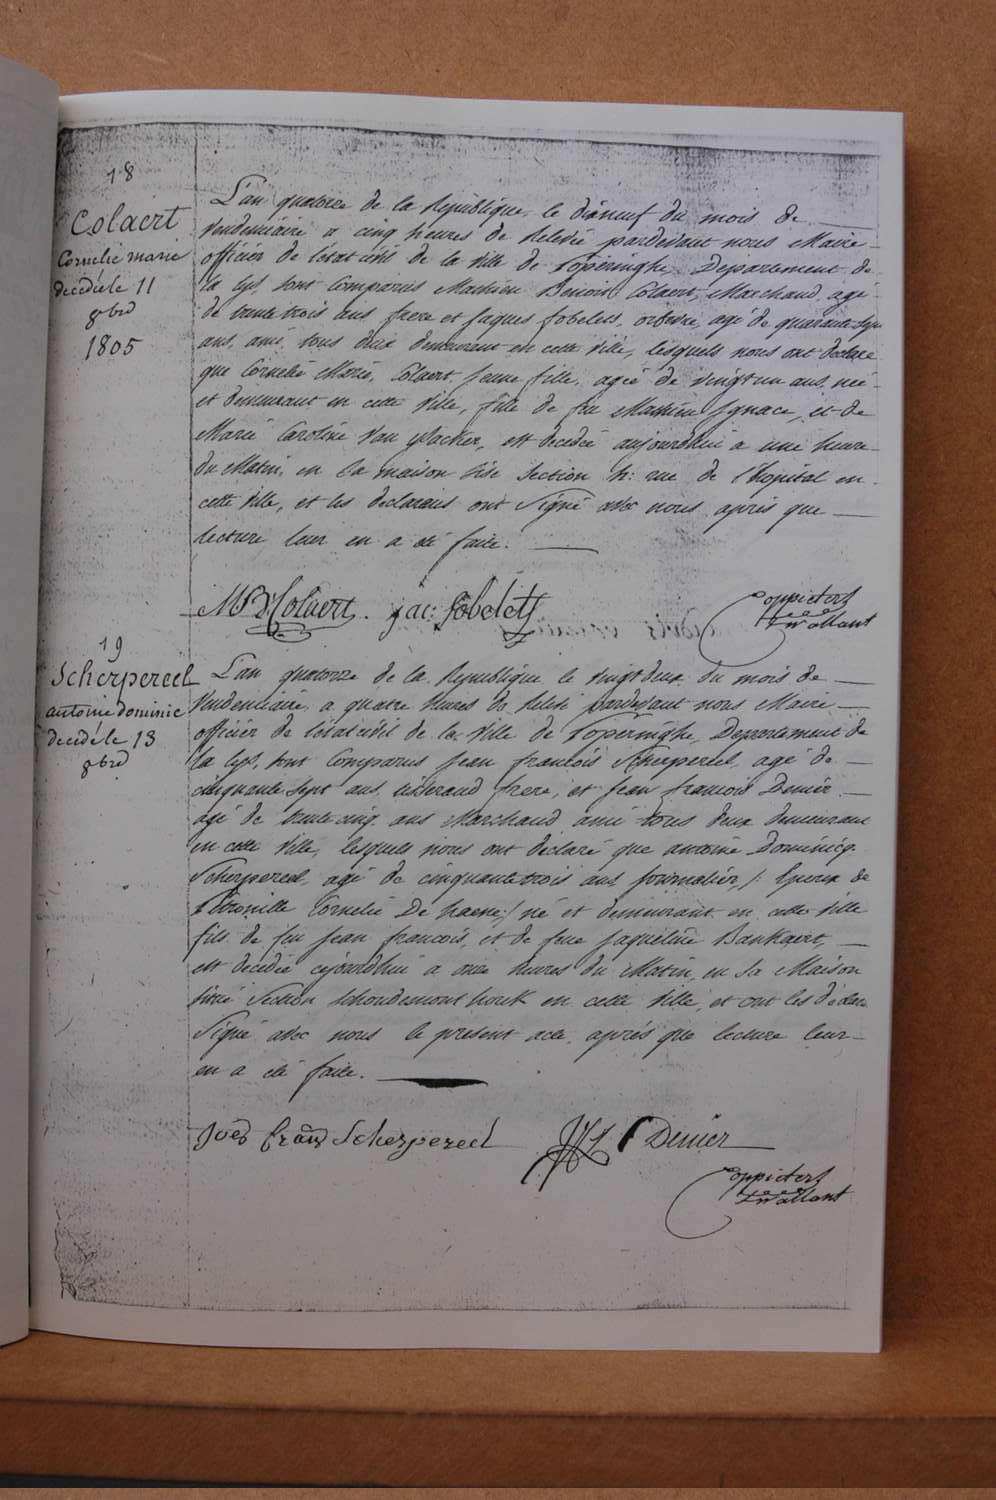 18
Colaert
Cornelie marie
decedé le 11
8bre
1805
L'an quatorze de la Republique, le dixneuf du mois de
Vendemiaire a cinq heures de Relevée pardevant nous Maire
officier de l'état civil de la ville de Poperinghe, Departement de
la Lys, sont Comparus Mathieu Benoit Colaert, Marchand, agé
de trente trois ans frere et Jaques Fobelets, orfevre, agé de quarante sept
ans, ami, tous deux demeurant en cette ville, lesquels nous ont declaré
que Cornelie Marie, Colaert, jeune fille, agée de vingt un ans, née
et demeurant en cette Ville, fille de feu Mathieu Ignace, et de
Marie Caroline Van , est decedée aujourdhui a une heure
du Matin, en la maison sise Section h: rue de l'hopital en
cette ville, et les declarans ont Signé avec nous, aprés que
lecture leur en a été faite.
M B: Colaert. Jac: Fobelets
Coppieters
Wallant
19
Scherpereel
antoine dominic
decedé le 13
8bre
L'an quatorze de la Republique le vingt deux du mois de
Vendemiaire, a quatre heures de Relevée pardevant nous Maire
officier de l'état civil de la Ville de Poperinghe, Departement de
la Lys, sont Comparus Jean francois Scherpereel, agé de
cinquante sept ans, tisserand frere, et Jean francois Denier
agé de trente cinq ans Marchand ami tous deux demeurant
en cette Ville, lesquels nous ont declaré que antoine Dominicq
Scherpereel, agé de cinquante trois ans journalier, /: Epoux de
Petronille Cornelie De haene :/ né et demeurant en cette Ville
fils de feu Jean francois, et de feue Jaqueline Bankaert,
est decedée cejourdhui a onze heures du Matin, en sa Maison
Section en cette Ville, et ont les déclarans
Signé avec nous le present acte, aprés que lecture leur
en a été faite.
Joes Frans Scherpereel
Denier
Coppieters
Wallant